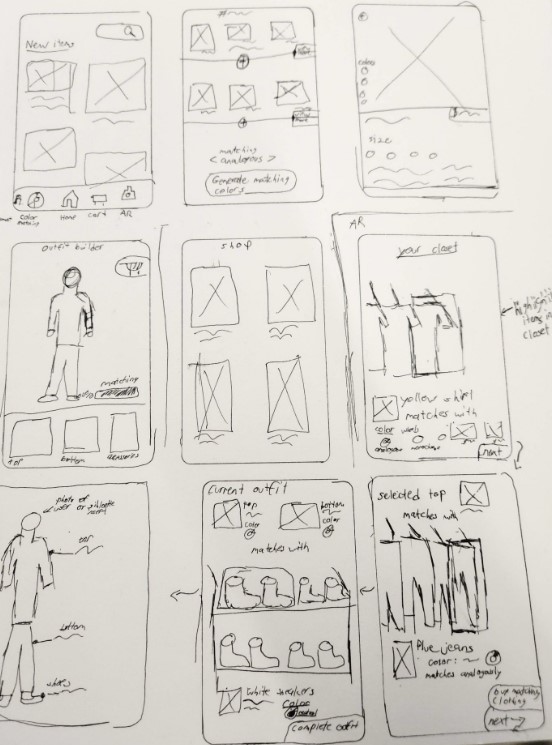 New items
color
Home
cart
AR
matching
< analogous >
Generate matching
colors
colors
size
outfit builder
matching
top
bottom
accessories
shop
AR
your closet
items in
closet
yellow shirt
matches with
color
next
photo of
user or
top
bottom
shoes
Current outfit
top
color
bottom
color
matches with
White sneakers
Color
neutral
Complete outfit
selected top
matches with
Blue jeans
color:
matches analogously
buy matching
clothing
next